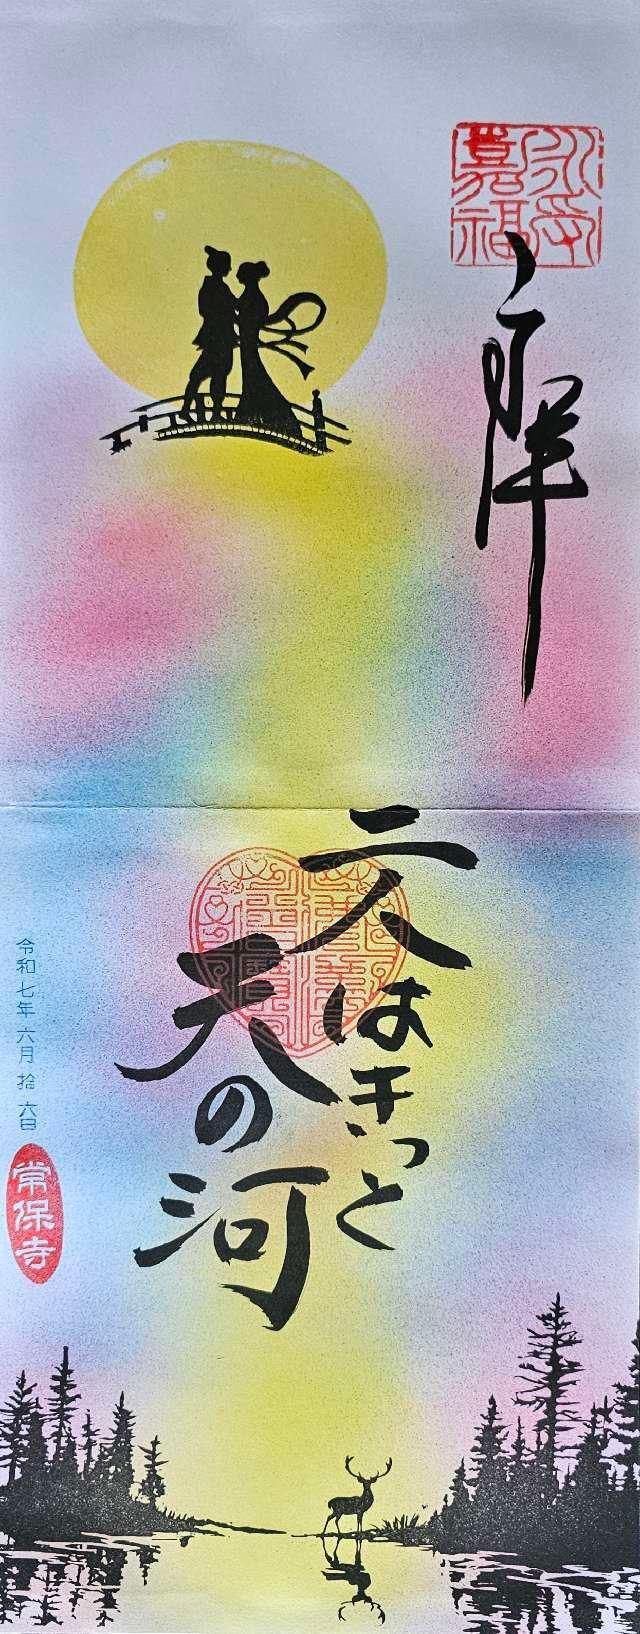 永受嘉福
奉拝
二人はきっと
天の河
令和七年六月拾六日
常保寺